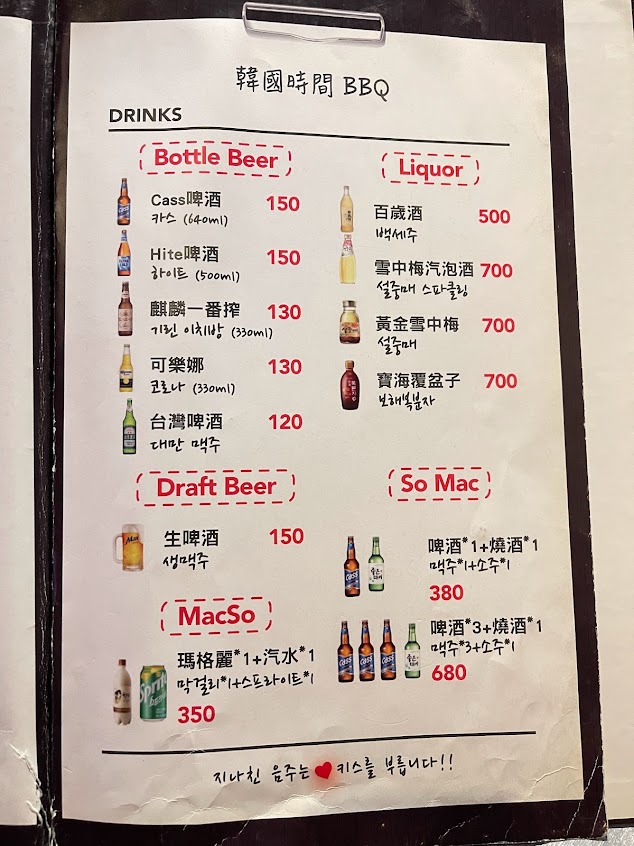 韓國時間 BBQ
DRINKS
Bottle Beer
Cass啤酒 150
카스 (640ml)
Hite啤酒 150
하이트 (500ml)
麒麟一番搾 130
기린 이치방 (330ml)
可樂娜 130
코로나 (330ml)
台灣啤酒 120
대만 맥주
Draft Beer
Max
生啤酒 150
생맥주
MacSo
瑪格麗*1+汽水*1
막걸리*1+스프라이트*1
Sprite
350
Liquor
百歲酒 500
백세주
雪中梅汽泡酒 700
설중매 스파클링
黃金雪中梅 700
설중매
寶海覆盆子 700
보해복분자
So Mac
啤酒*1+燒酒*1
맥주*1+소주*1
Cass
380
啤酒*3+燒酒*1
맥주*3+소주*1
Cass Cass Cass
680
지나친 음주는 키스를 부릅니다!!